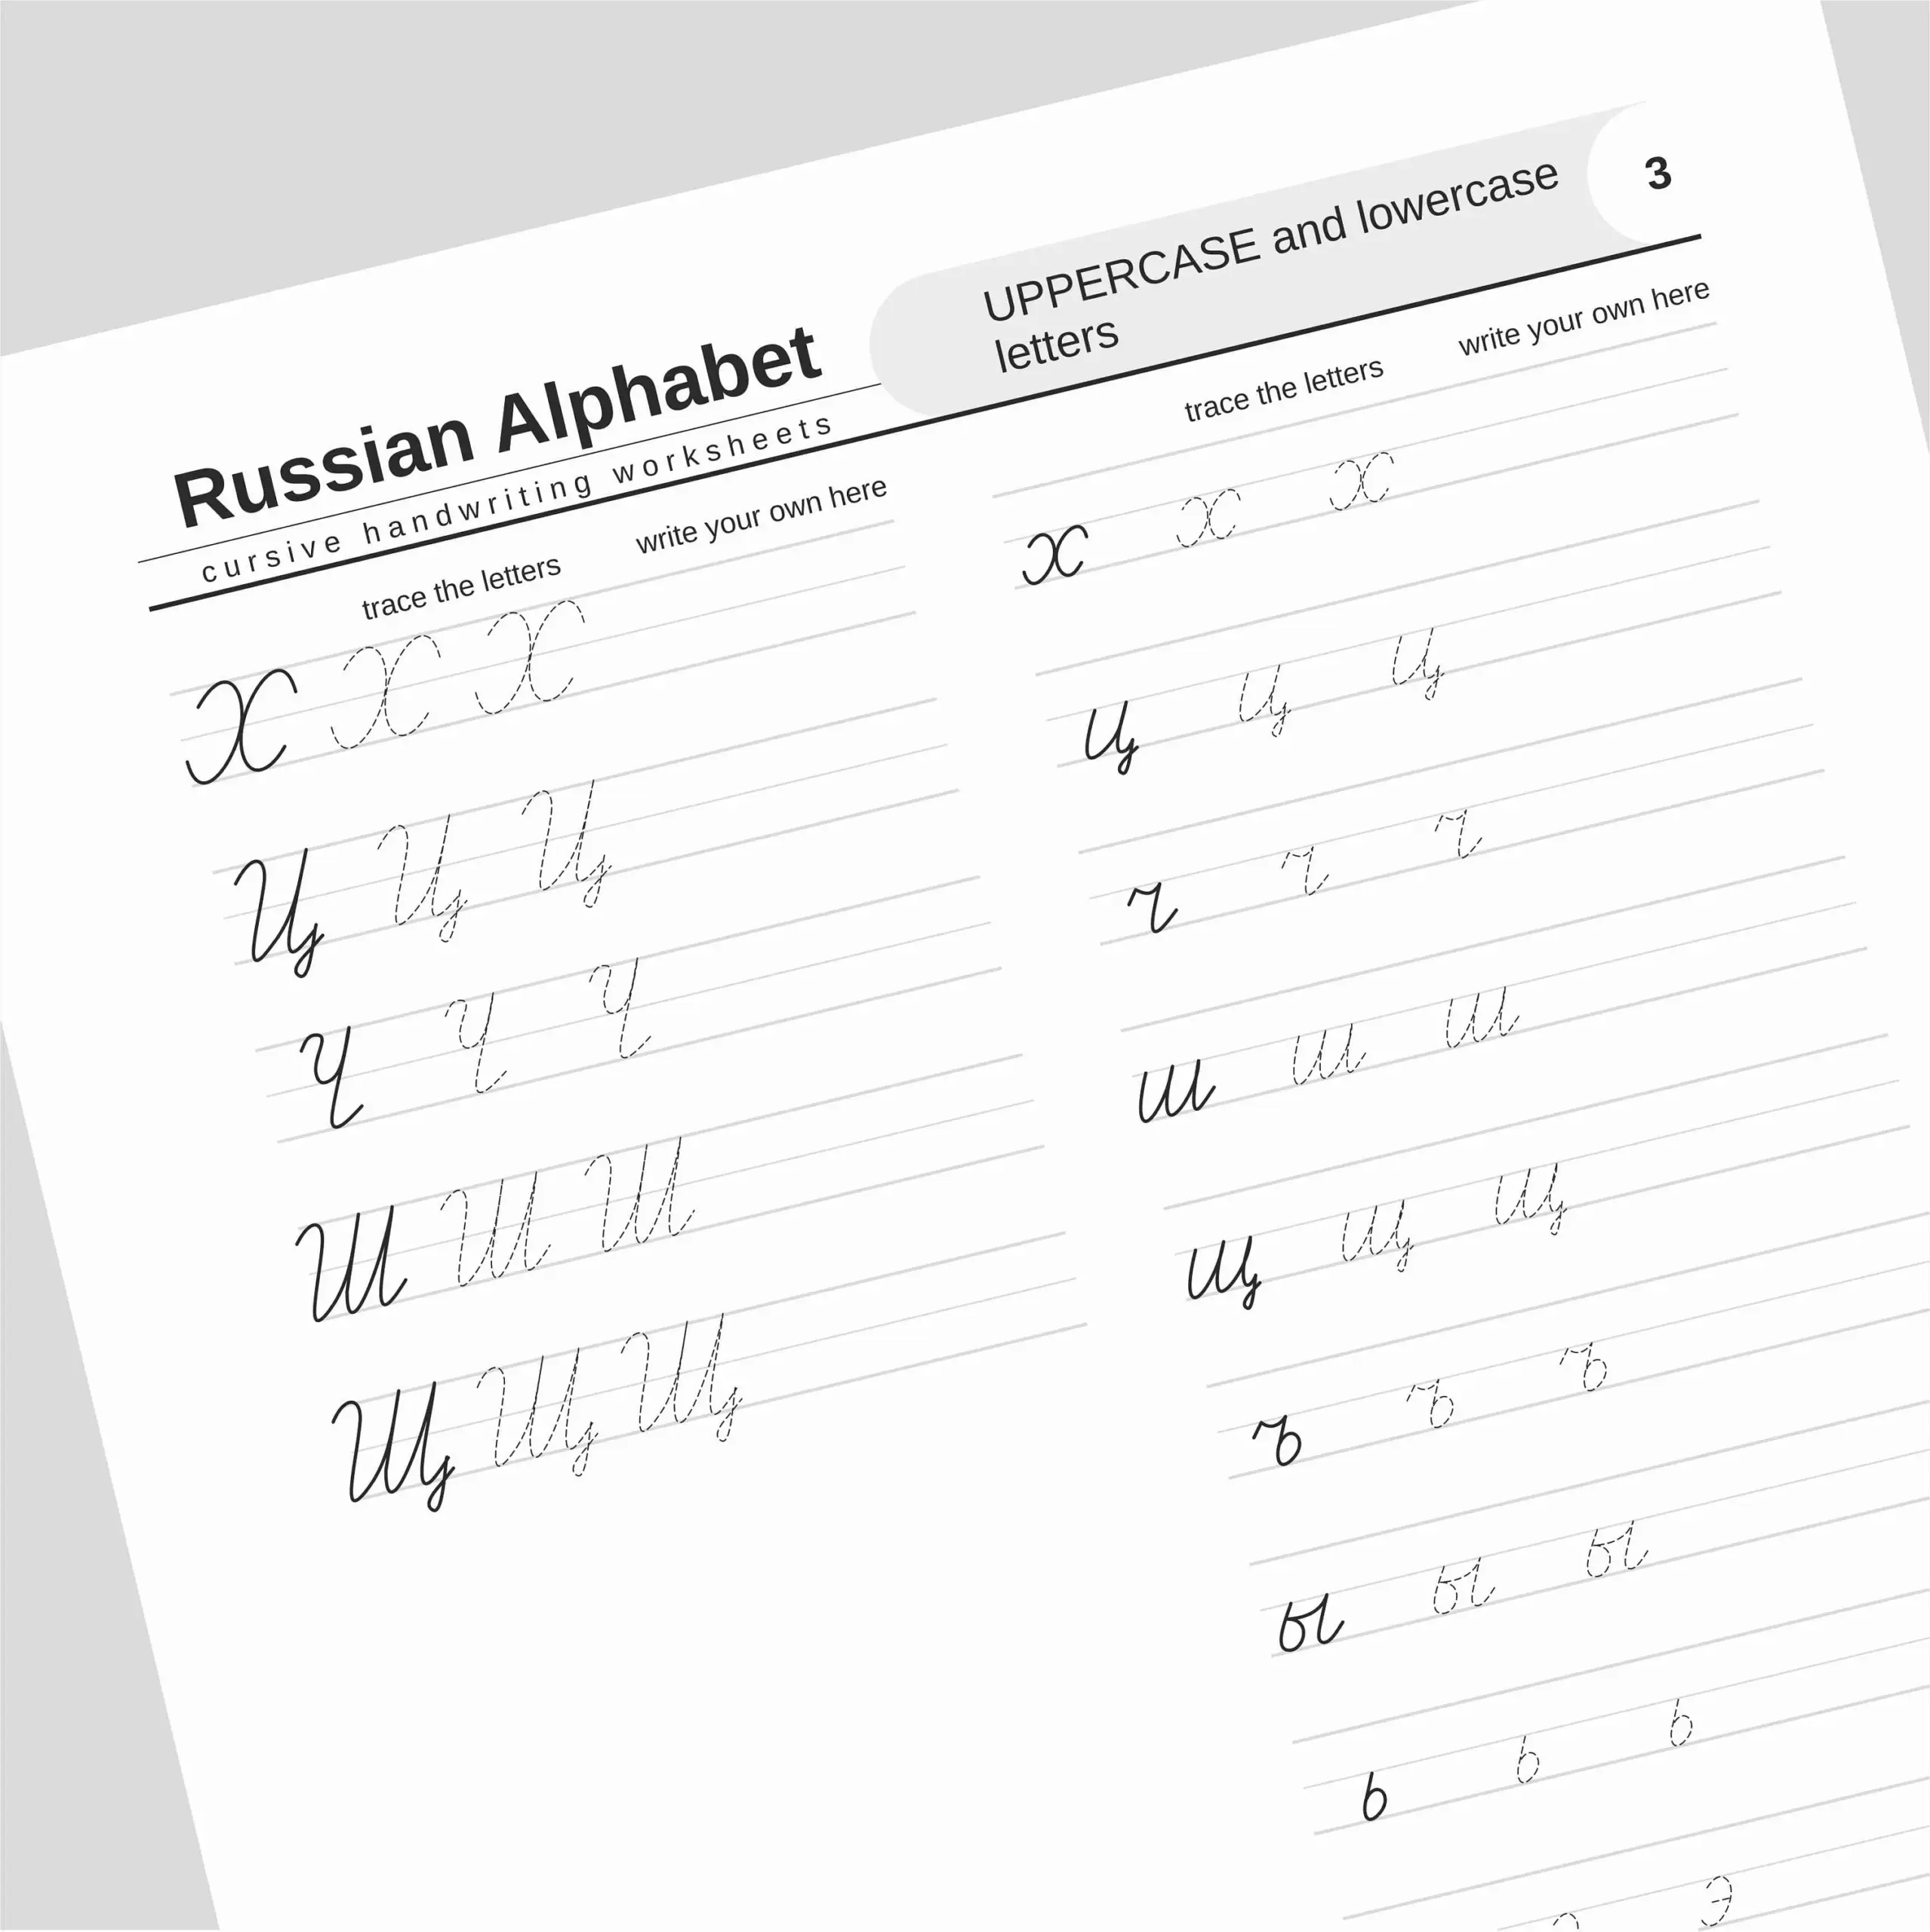 Russian Alphabet
cursive handwriting worksheets
UPPERCASE and lowercase
letters
3
trace the letters write your own here
Х Х Х
Ц Ц Ц
Ч Ч Ч
Ш Ш Ш
Щ Щ Щ
trace the letters write your own here
х х х
ц ц ц
ч ч ч
ш ш ш
щ щ щ
ъ ъ ъ
ы ы ы
ь ь ь
э